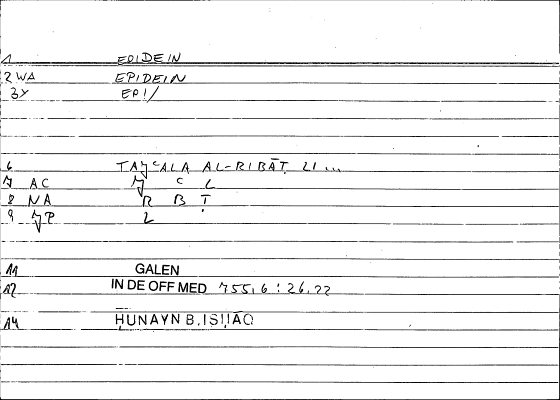 1 EPIDEIN
2 WA EPIDEIN
3 Y EPI/
6 TAǦʿALA AL-RIBĀṬ LI ...
7 AC Ǧ C L
8 NA R B Ṭ
9 ǦP L
11 GALEN
12 IN DE OFF MED 755,6 : 26.22
14 ḤUNAYN B. ISḤĀQ